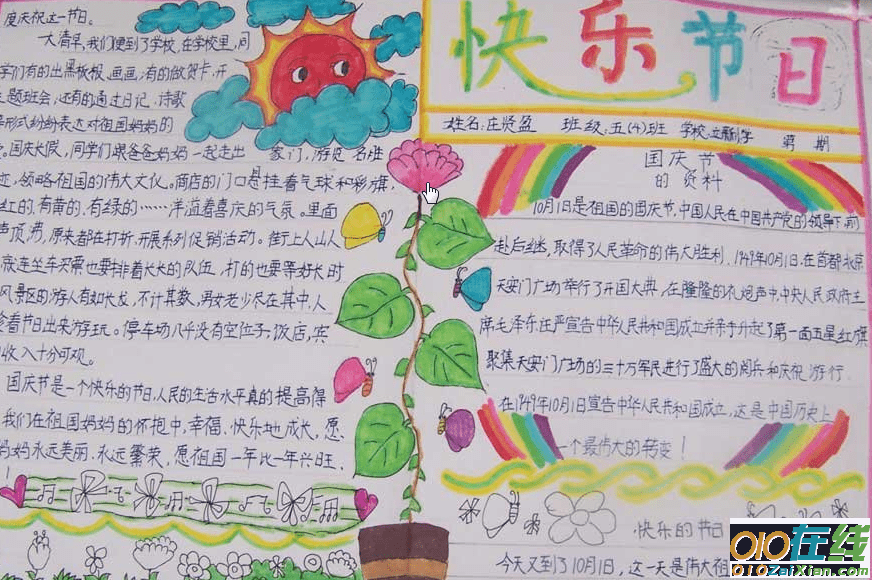 快乐节日
姓名:庄贤盈 班级:五(4)班 学校: 第 期
度庆祝这一节日。
大清早,我们便到了学校,在学校里,同
学们有的出黑板报、画画,有的做贺卡、开
主题班会,还有的通过日记、诗歌
等形式纷纷表达对祖国妈妈的
国庆长假,同学们跟爸爸妈妈一起走出 家门,游览名胜
迹,领略祖国的伟大文化。商店的门口悬挂着气球和彩旗,
红的、有黄的、有绿的……洋溢着喜庆的气氛。里面
声顶沸,原来都在打折、开展系列促销活动。街上人山人
就连坐车买票也要排着长长的队伍,打的也要等好长时
风景区的游人有如长龙,不计其数,男女老少尽在其中,人
趁着节日出来游玩。停车场几乎没有空位子,饭店、宾
收入十分可观。
国庆节是一个快乐的节日,人民的生活水平真的提高得
我们在祖国妈妈的怀抱中,幸福、快乐地成长,愿
妈妈永远美丽、永远繁荣,愿祖国一年比一年兴旺、
!
国庆节
的资料
10月1日是祖国的国庆节,中国人民在中国共产党的领导下,前
赴后继,取得了人民革命的伟大胜利。1949年10月1日,在首都北京
天安门广场举行了开国大典,在隆隆的礼炮声中,中央人民政府主
席毛泽东庄严宣告中华人民共和国成立并亲手升起了第一面五星红旗
聚集天安门广场的三十万军民进行了盛大的阅兵和庆祝游行.
在1949年10月1日宣告中华人民共和国成立,这是中国历史上
一个最伟大的转变!
快乐的节日
今天又到了10月1日,这一天是伟大祖
010在线
010ZaiXian.com